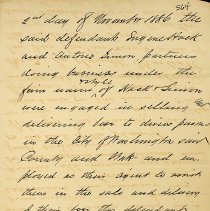 564
2nd day of November 1886 the
said defendants Eugene Hack
and Antone Simon partners
doing business under the
style
firm name of Hack & Simon
were engaged in selling and
delivering beer to divers persons
in the City of Washington said
County and State and em
ployed as their agent to assist
them in the sale and delivery
of their beer the defendant